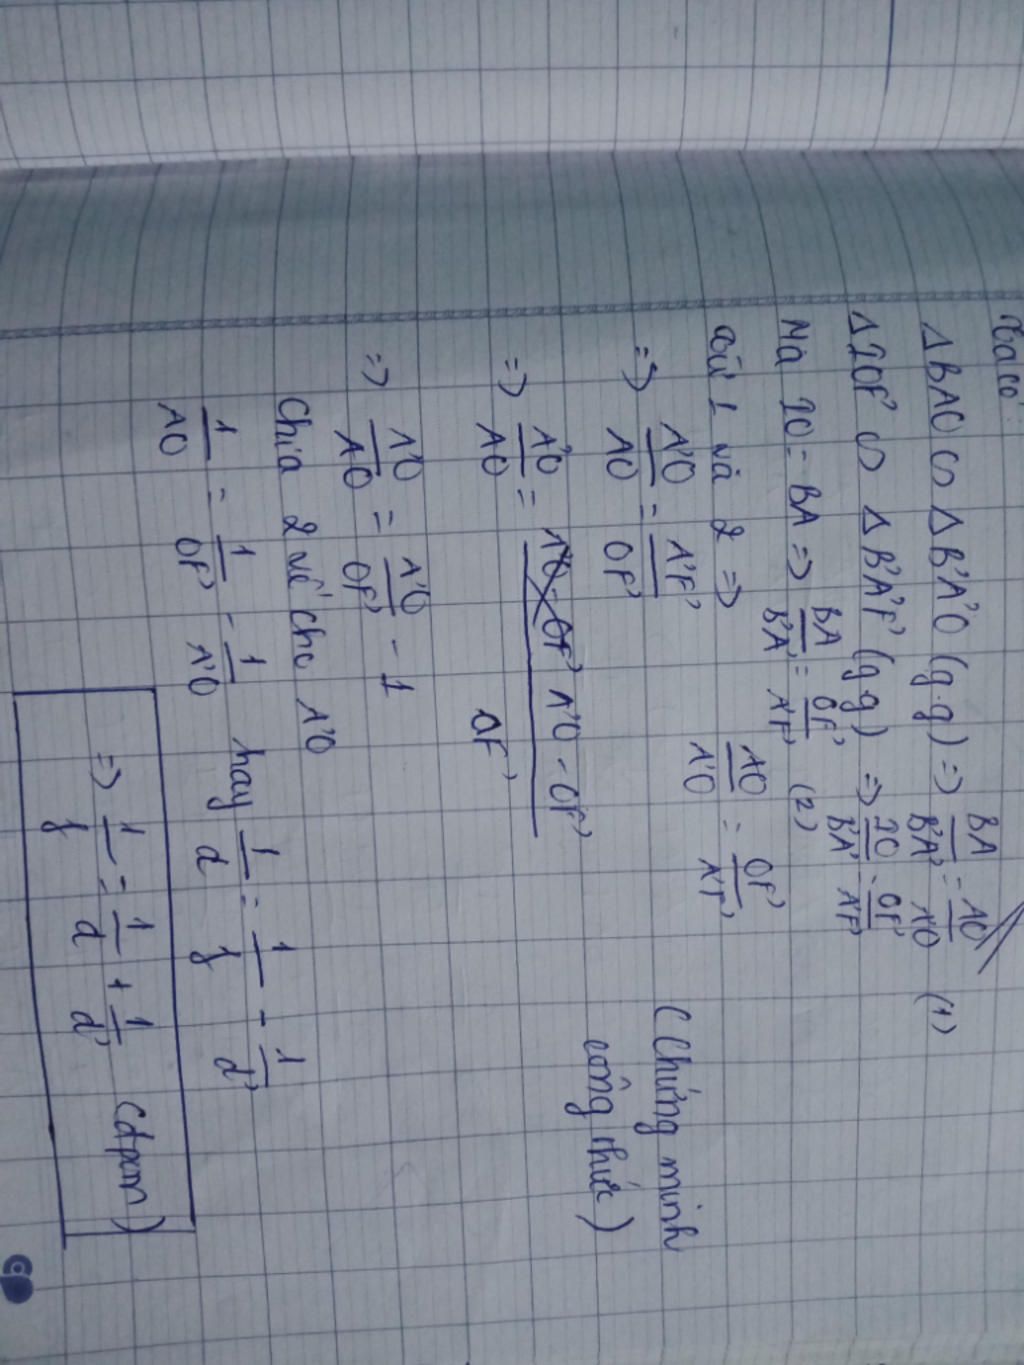 Ta có:
Δ BAO ∽ Δ B'A'O (g.g) => BA/B'A' = AO/A'O (1)
Δ IOF' ∽ Δ B'A'F' (g g) => IO/B'A' = OF'/A'F'
Mà IO = BA => BA/B'A' = OF'/A'F' (2)
Từ 1 và 2 => AO/A'O = OF'/A'F'
(Chứng minh
công thức)
=> A'O/AO = A'F'/OF'
=> A'O/AO = A'O - OF'/OF'
=> A'O/AO = A'O/OF' - 1
Chia 2 vế cho A'O
1/AO = 1/OF' - 1/A'O hay 1/d = 1/f - 1/d'
=> 1/f = 1/d + 1/d' (đpcm)